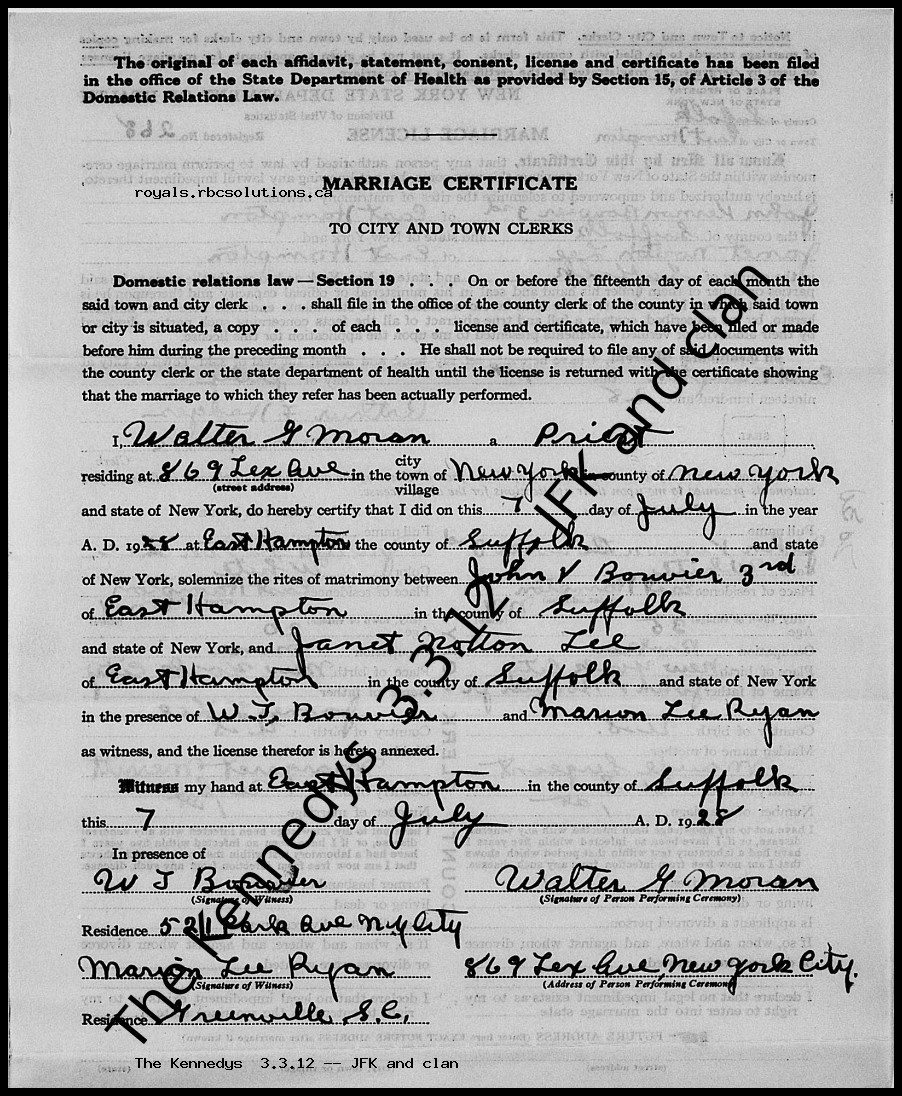 The original of each affidavit, statement, consent, license and certificate has been filed
in the office of the State Department of Health as provided by Section 15, of Article 3 of the
Domestic Relations Law.
MARRIAGE CERTIFICATE
royals.rbcsolutions.ca
TO CITY AND TOWN CLERKS
Domestic relations law — Section 19 . . . On or before the fifteenth day of each month the
said town and city clerk . . . shall file in the office of the county clerk of the county in which said town
or city is situated, a copy . . . of each . . . license and certificate, which have been filed or made
before him during the preceding month . . . He shall not be required to file any of said documents with
the county clerk or the state department of health until the license is returned with the certificate showing
that the marriage to which they refer has been actually performed.
I, Walter G Moran a Priest
residing at 869 Lex Ave in the city town of village New York in county of New York
(street address)
and state of New York, do hereby certify that I did on this 7 day of July in the year
A. D. 1928 at East Hampton the county of Suffolk and state
of New York, solemnize the rites of matrimony between John V Bouvier 3rd
of East Hampton in the county of Suffolk
and state of New York, and Janet Norton Lee
of East Hampton in the county of Suffolk and state of New York
in the presence of W. J. Bouvier and Marion Lee Ryan
as witness, and the license therefor is hereto annexed.
Witness my hand at East Hampton in the county of Suffolk
this 7 day of July A. D. 1928
In presence of
W J Bouvier Walter G Moran
(Signature of Witness) (Signature of Person Performing Ceremony)
Residence 521 Park Ave N.Y City
Marion Lee Ryan 869 Lex Ave, New York City.
(Signature of Witness) (Address of Person Performing Ceremony)
Residence Greenville S.C.
The Kennedys 3.3.12 JFK and clan
The Kennedys 3.3.12 -- JFK and clan